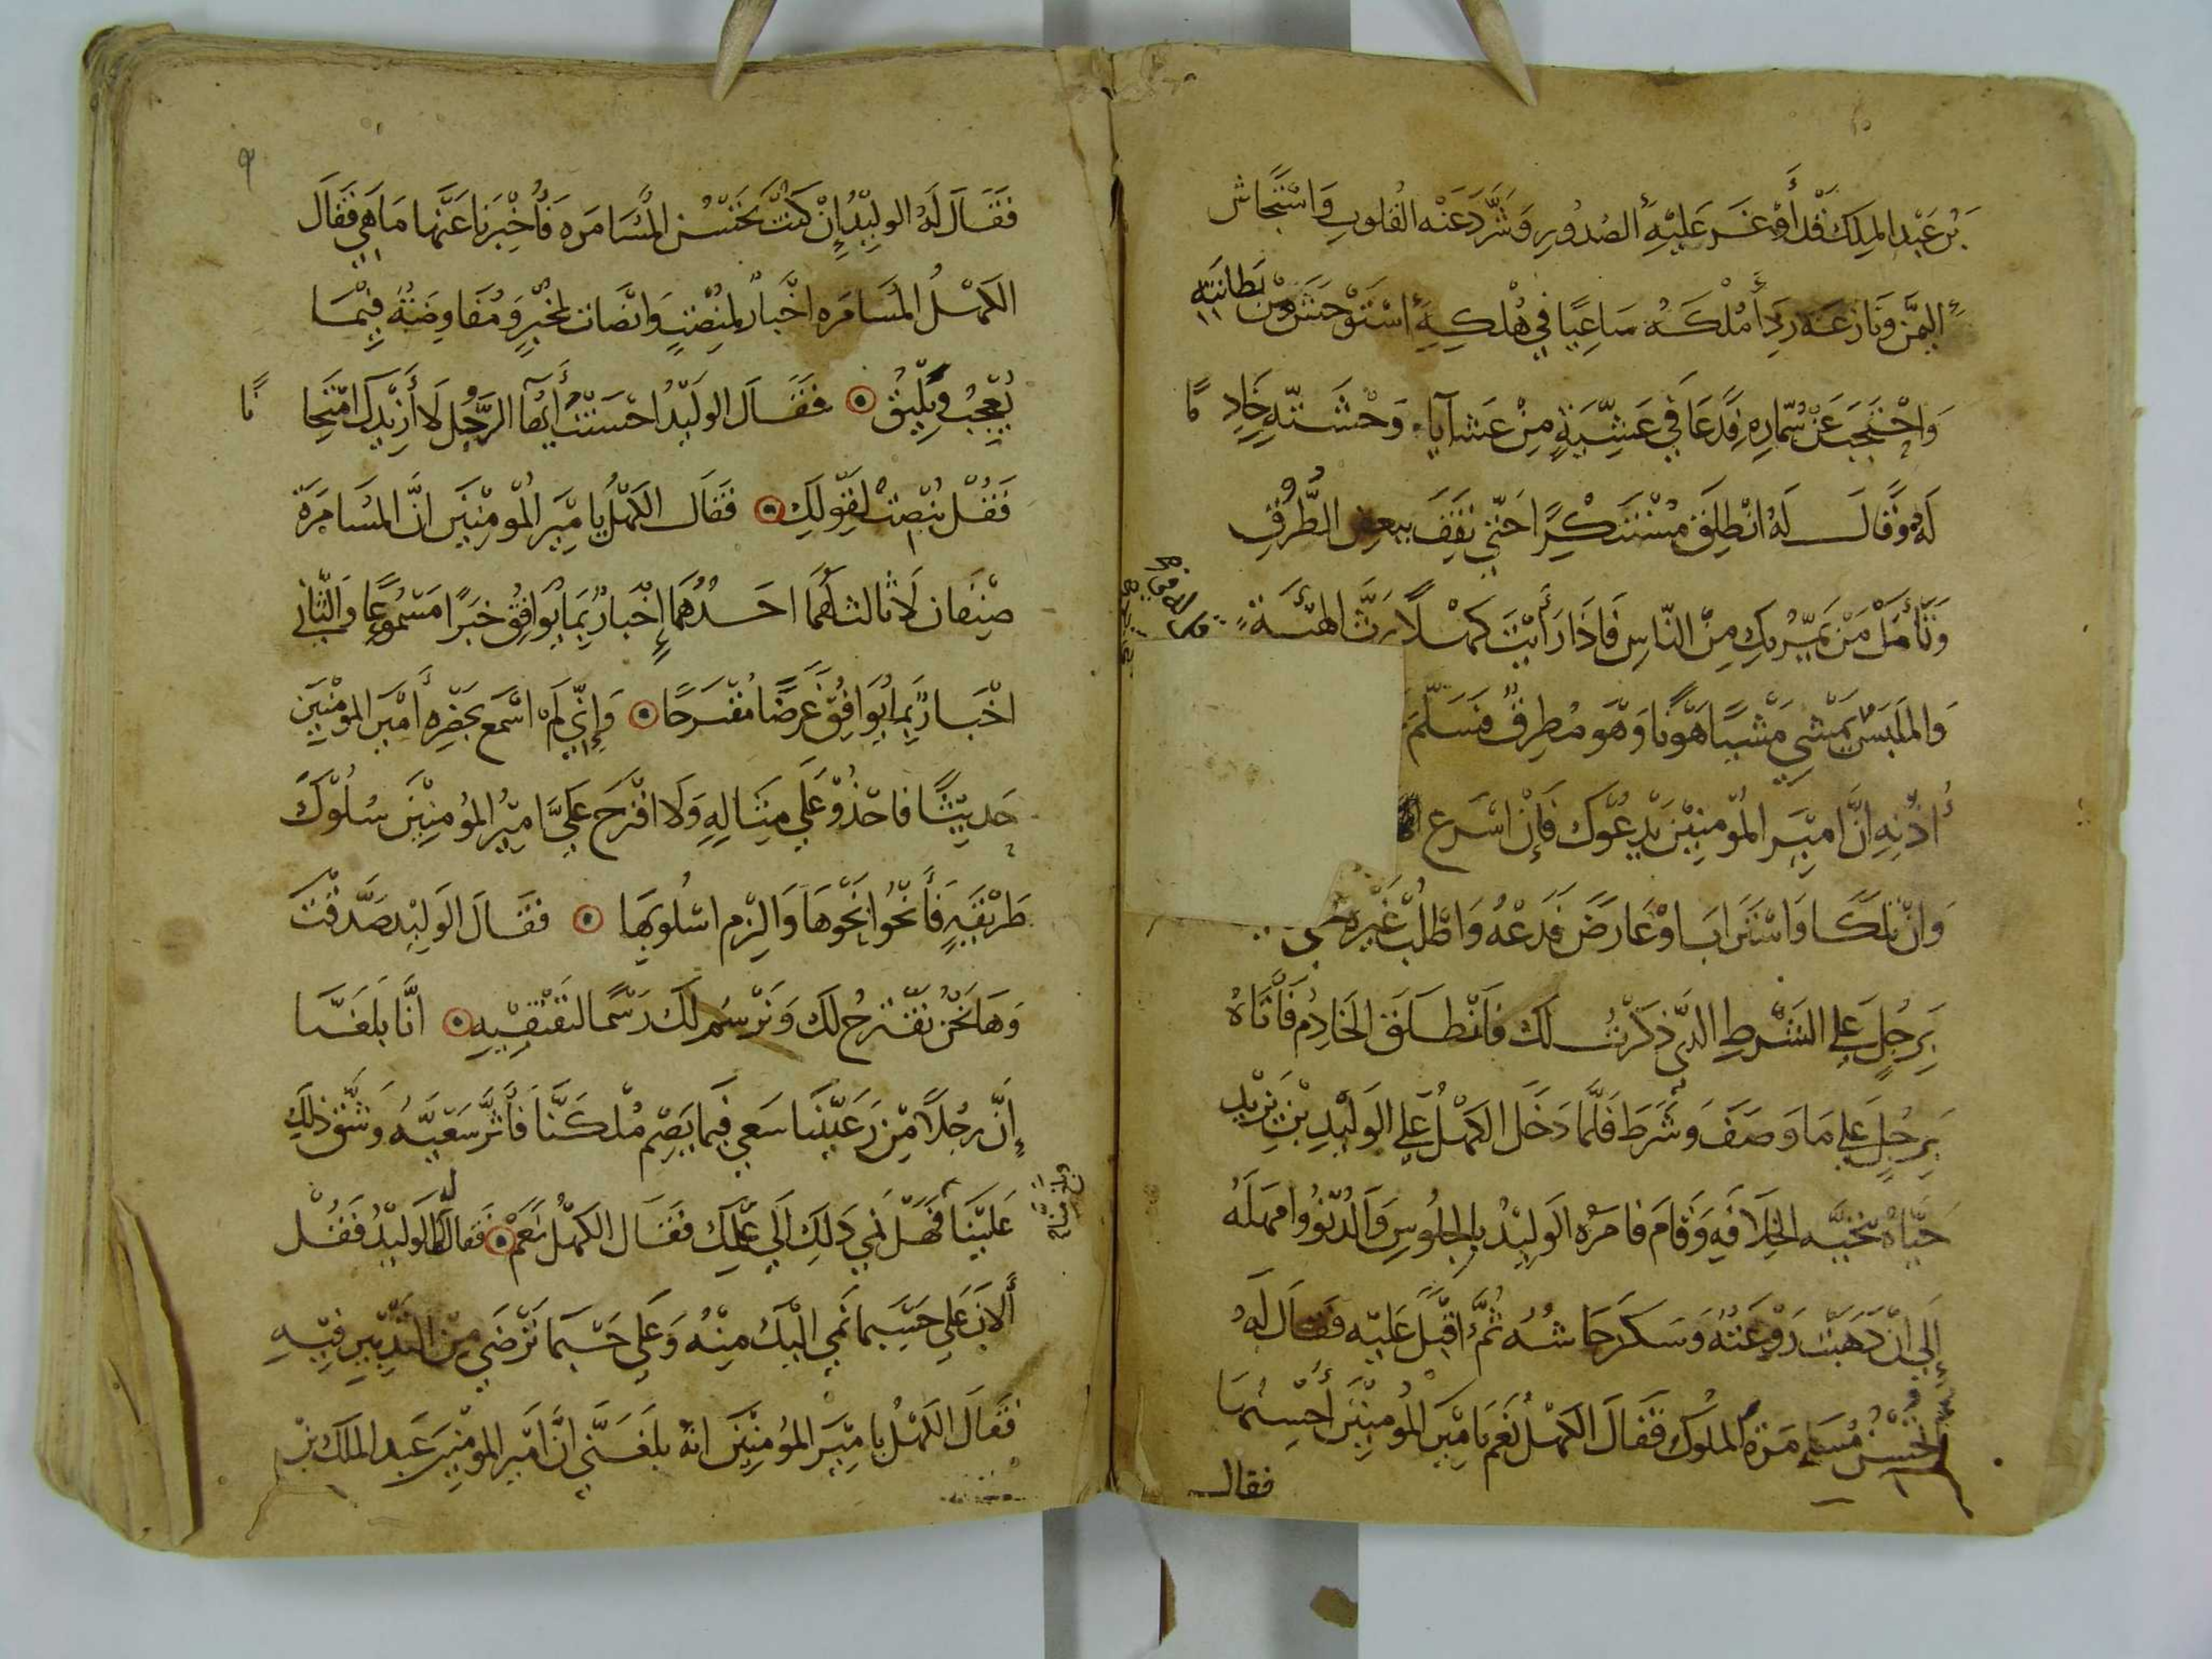 بن عبد الملك قد أوغر عليه الصدور وشرد عنه القلوب واستجاش
اليمن ونازعه ردأ ملكه ساعيا في هلكه استوحش من بطانته
واحتجب عن سماره فدعا في عشية من عشايا وحشته خادما
له وقال له انطلق متنكرا حتى تقف ببعض الطرق
وتأمل من يمر بك من الناس فاذا رأيت كهلا رث الهيئة
والملبس يمشي مشيا هونا وهو مطرق فسلم
أذنه ان امير المؤمنين يدعوك فإن اسرع
وان تلكا واستراب او عارض فدعه واطلب غيره حتى
برجل على الشرط الذي ذكرت لك فانطلق الخادم فأتاه
برجل على ما وصف وشرط فلما دخل الكهل على الوليد بن يزيد
حياه تحيه الخلافه وقام فامره الوليد بالجلوس والدنو وامهله
إلى ان ذهبت روعته وسكن جاشه ثم اقبل عليه فقال له
اتحسن مسامرة الملوك فقال الكهل نعم يا امير المؤمنين أحسنها
فقال
٩
فقال له الوليد إن كنت تحسن المسامره فأخبرنا عنها ما هي فقال
الكهل المسامره اخبار لمنصت وانصات لمخبر ومفاوضة فيما
يعجب ويليق فقال الوليد احسنت أيها الرجل لا أزيدك امتحانا
فقل ننصت لقولك فقال الكهل يا امير المؤمنين ان المسامرة
صنفان لا ثالث لهما احدهما إخبار بما يوافق خبرا مسموعا والثاني
اخبار بما يوافق غرضا مقترحا وإني لم اسمع بحضره أمير المؤمنين
حديثا فاحذو على مثاله ولا اقترح علي امير المؤمنين سلوك
طريقه فأنحو نحوها والزم اسلوبها فقال الوليد صدقت
وها نحن نقترح لك ونرسم لك رسما لتقتفيه انا بلغنا
إن رجلا من رعيتنا سعى فيما يصم ملكنا فأثر سعيه وشق ذلك
علينا فهل نمي ذلك الي علمك فقال الكهل نعم فقال له الوليد فقل
الان على حسبما نمي اليك منه وعلى حسبما ترضى من التدبير فيه
فقال الكهل يا امير المؤمنين انه بلغني ان أمير المؤمنين عبد الملك بن